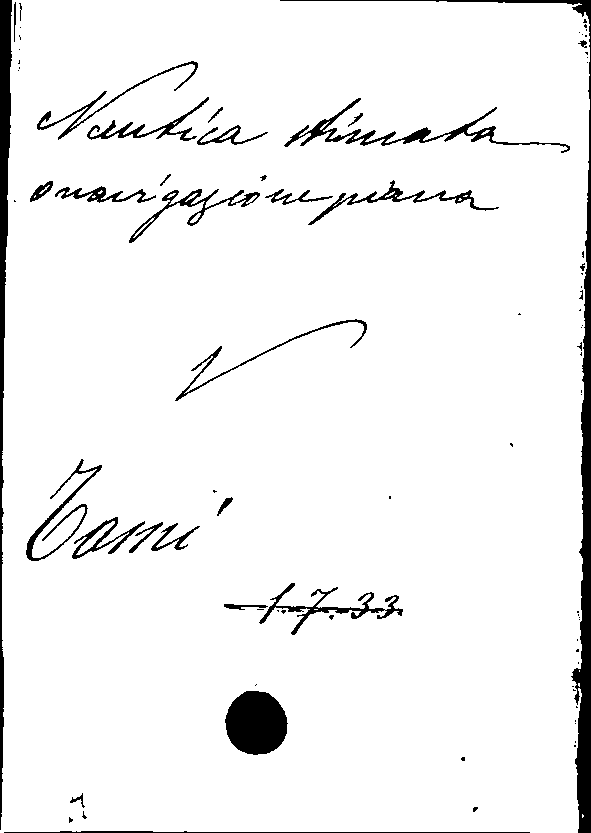 Nautica stimata
o navigazione piana
V
Tomi
1.7.33.